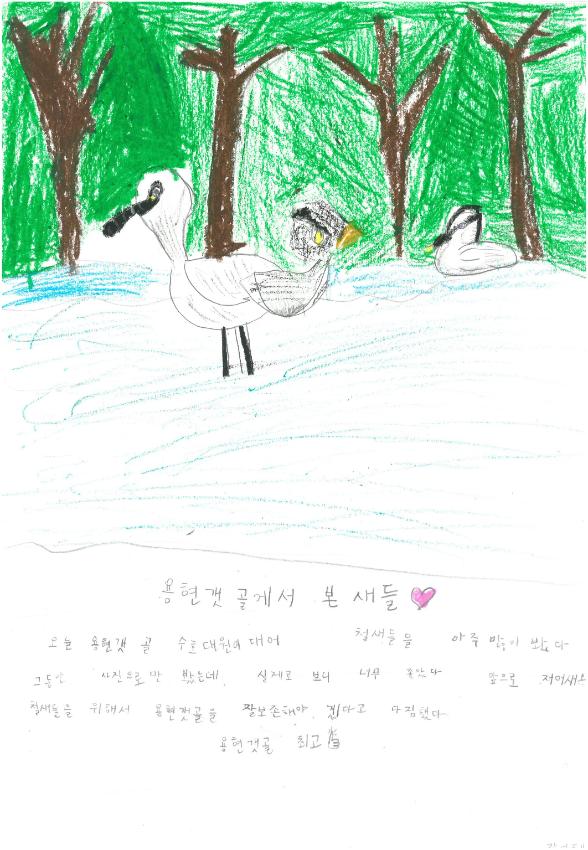 용현갯골에서 본 새들
오늘 용현갯골 수호대원이 대어 철새들을 아주 많이 봤다
그동안 사진으로만 봤는데, 실제로 보니 너무 좋았다 앞으로 저어새와
철새들을 위해서 용현갯골을 잘보존해야 겠다고 다짐했다
용현갯골 최고